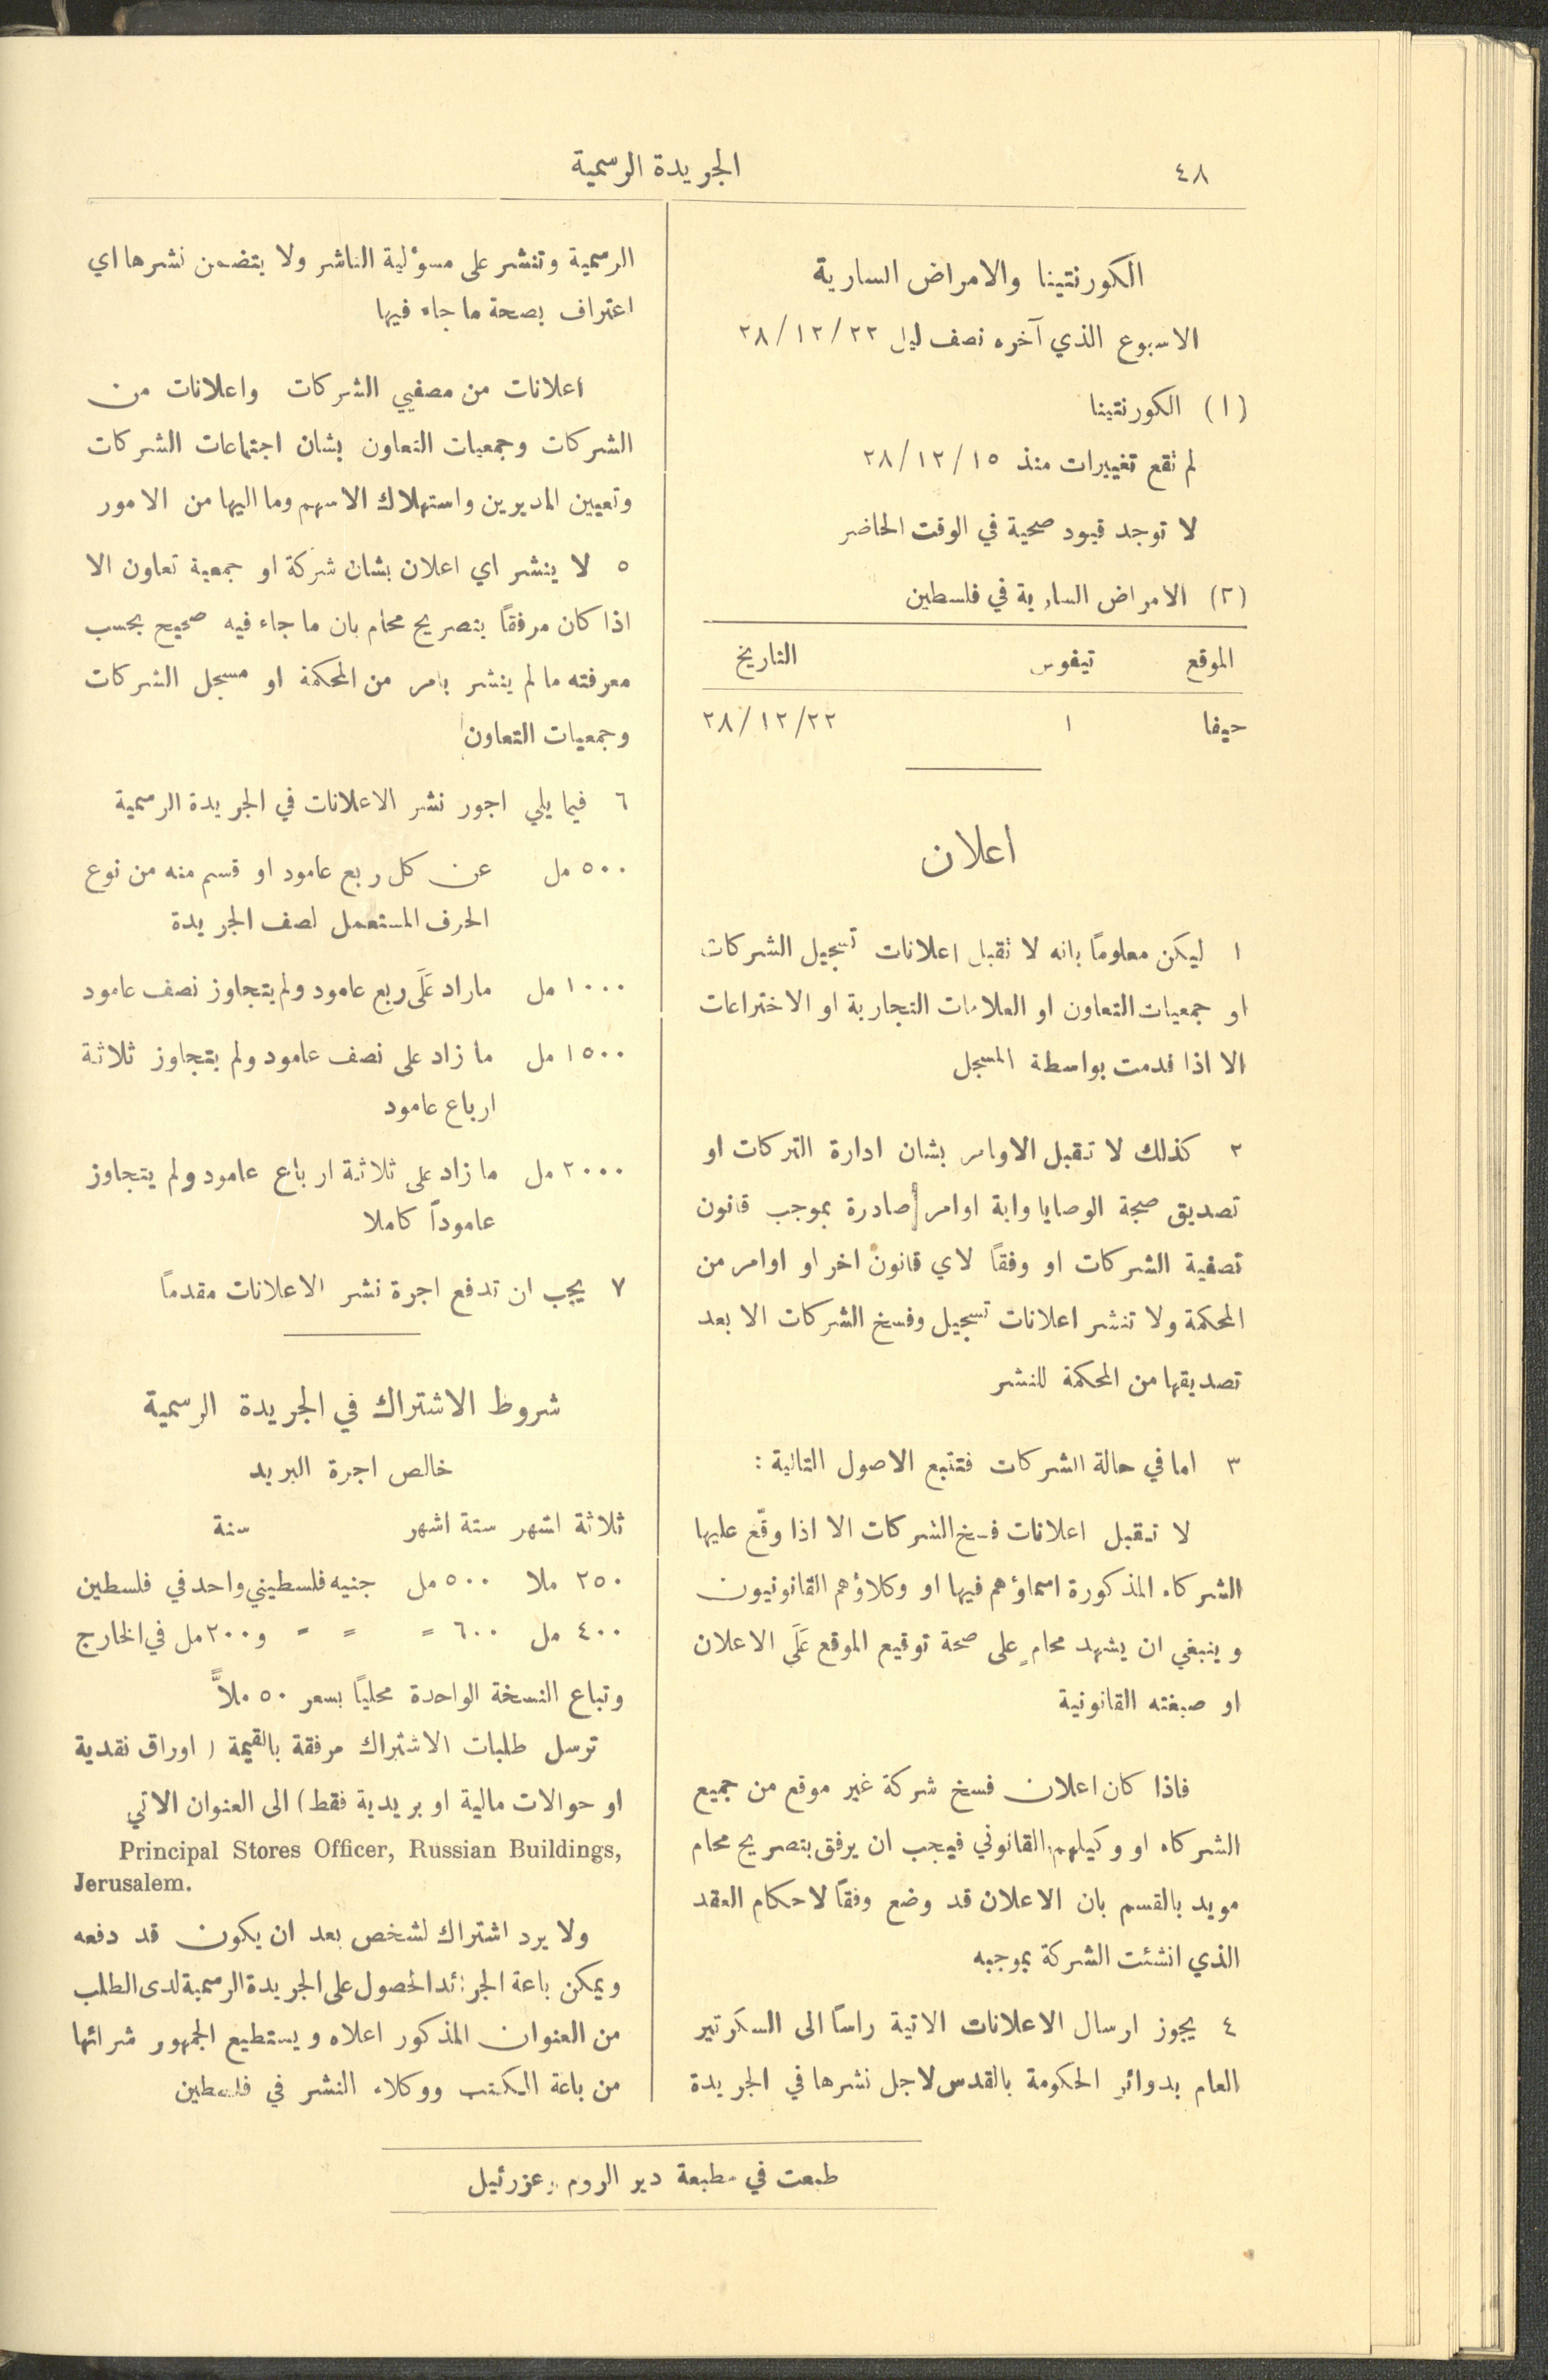 ٤٨
الجريدة الرسمية
الكورنتينا والامراض السارية
الاسبوع الذي آخره نصف ليل ٢٢/١٢/٢٨
(١) الكورنتينا
لم تقع تغييرات منذ ١٥/١٢/٢٨
لا توجد قيود صحية في الوقت الحاضر
(٢) الامراض السارية في فلسطين
الموقع تيفوس التاريخ
حيفا ١ ٢٢/١٢/٢٨
اعلان
١ ليكن معلوماً بانه لا تقبل اعلانات تسجيل الشركات
او جمعيات التعاون او العلامات التجارية او الاختراعات
الا اذا قدمت بواسطة المسجل
٢ كذلك لا تقبل الاوامر بشان ادارة التركات او
تصديق صحة الوصايا واية اوامر صادرة بموجب قانون
تصفية الشركات او وفقاً لاي قانون اخر او اوامر من
المحكمة ولا تنشر اعلانات تسجيل وفسخ الشركات الا بعد
تصديقها من المحكمة للنشر
٣ اما في حالة الشركات فتتبع الاصول التالية :
لا تقبل اعلانات فسخ الشركات الا اذا وقّع عليها
الشركاء المذكورة اسماؤهم فيها او وكلاؤهم القانونيون
وينبغي ان يشهد محامٍ على صحة توقيع الموقع عَلَى الاعلان
او صبغته القانونية
فاذا كان اعلان فسخ شركة غير موقع من جميع
الشركاء او وكيلهم القانوني فيجب ان يرفق بتصريح محام
مويد بالقسم بان الاعلان قد وضع وفقاً لاحكام العقد
الذي انشئت الشركة بموجبه
٤ يجوز ارسال الاعلانات الاتية راساً الى السكرتير
العام بدوائر الحكومة بالقدس لاجل نشرها في الجريدة
الرسمية وتنشر على مسوءلية الناشر ولا يتضمن نشرها اي
اعتراف بصحة ما جاء فيها
اعلانات من مصفيي الشركات واعلانات من
الشركات وجمعيات التعاون بشان اجتماعات الشركات
وتعيين المديرين واستهلاك الاسهم وما اليها من الامور
٥ لا ينشر اي اعلان بشان شركة او جمعية تعاون الا
اذا كان مرفقاً بتصريح محام بان ما جاء فيه صحيح بحسب
معرفته ما لم ينشر بامر من المحكمة او مسجل الشركات
وجمعيات التعاون
٦ فيما يلي اجور نشر الاعلانات في الجريدة الرسمية
٥٠٠ مل عن كل ربع عامود او قسم منه من نوع
الحرف المستعمل لصف الجريدة
١٠٠٠ مل ماراد عَلَى ربع عامود ولم يتجاوز نصف عامود
١٥٠٠ مل ما زاد على نصف عامود ولم يتجاوز ثلاثة
ارباع عامود
٢٠٠٠ مل ما زاد على ثلاثة ارباع عامود ولم يتجاوز
عاموداً كاملا
٧ يجب ان تدفع اجرة نشر الاعلانات مقدماً
شروط الاشتراك في الجريدة الرسمية
خالص اجرة البريد
ثلاثة اشهر ستة اشهر سنة
٢٥٠ ملا ٥٠٠ مل جنيه فلسطيني واحد في فلسطين
٤٠٠ مل ٦٠٠ = = = و٢٠٠ مل في الخارج
وتباع النسخة الواحدة محلياً بسعر ٥٠ ملاًّ
ترسل طلبات الاشتراك مرفقة بالقيمة ( اوراق نقدية
او حوالات مالية او بريدية فقط ) الى العنوان الاتي
Principal Stores Officer, Russian Buildings,
Jerusalem.
ولا يرد اشتراك لشخص بعد ان يكون قد دفعه
ويمكن باعة الجرائد الحصول على الجريدة الرسمية لدى الطلب
من العنوان المذكور اعلاه ويستطيع الجمهور شرائها
من باعة الكتب ووكلاء النشر في فلسطين
طبعت في مطبعة دير الروم وعزرئيل